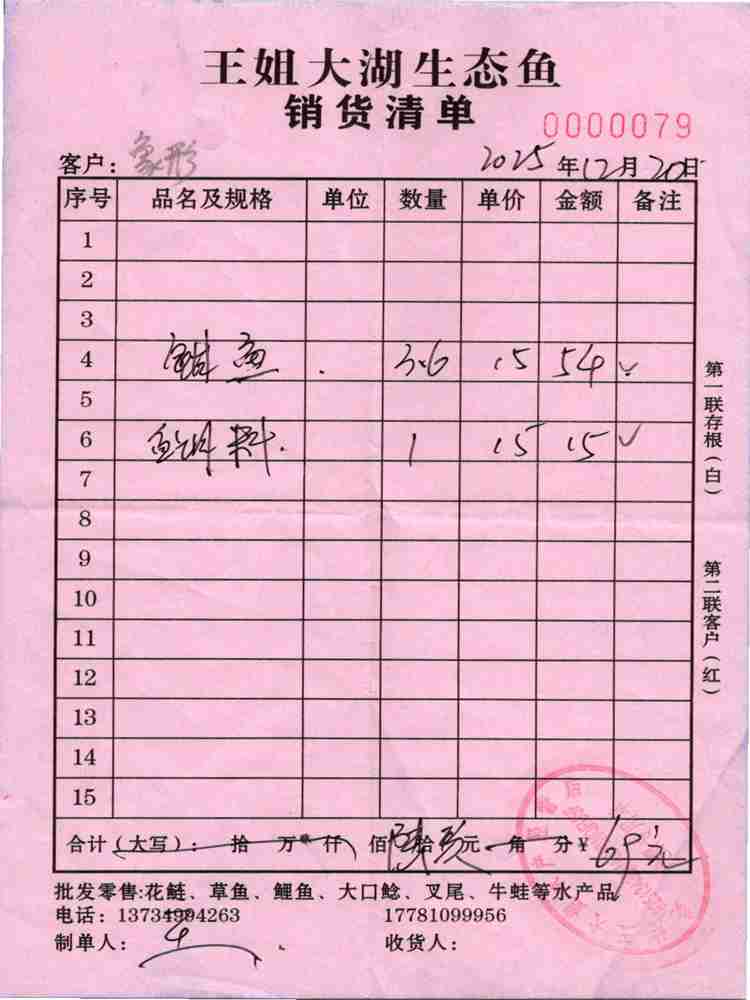 王姐大湖生态鱼
销货清单
0000079
客户：象形 2025年12月20日
序号 品名及规格 单位 数量 单价 金额 备注
1
2
3
4 鱼 3.6 15 54 ✓
5
6 料 1 15 15 ✓
7
8
9
10
11
12
13
14
15
合计（大写）： 拾 万 仟 佰 陆拾玖元 角 分￥69元
批发零售：花鲢、草鱼、鲤鱼、大口鲶、叉尾、牛蛙等水产品
电话：13734994263 17781099956
制单人： 收货人：
第一联存根（白）
第二联客户（红）